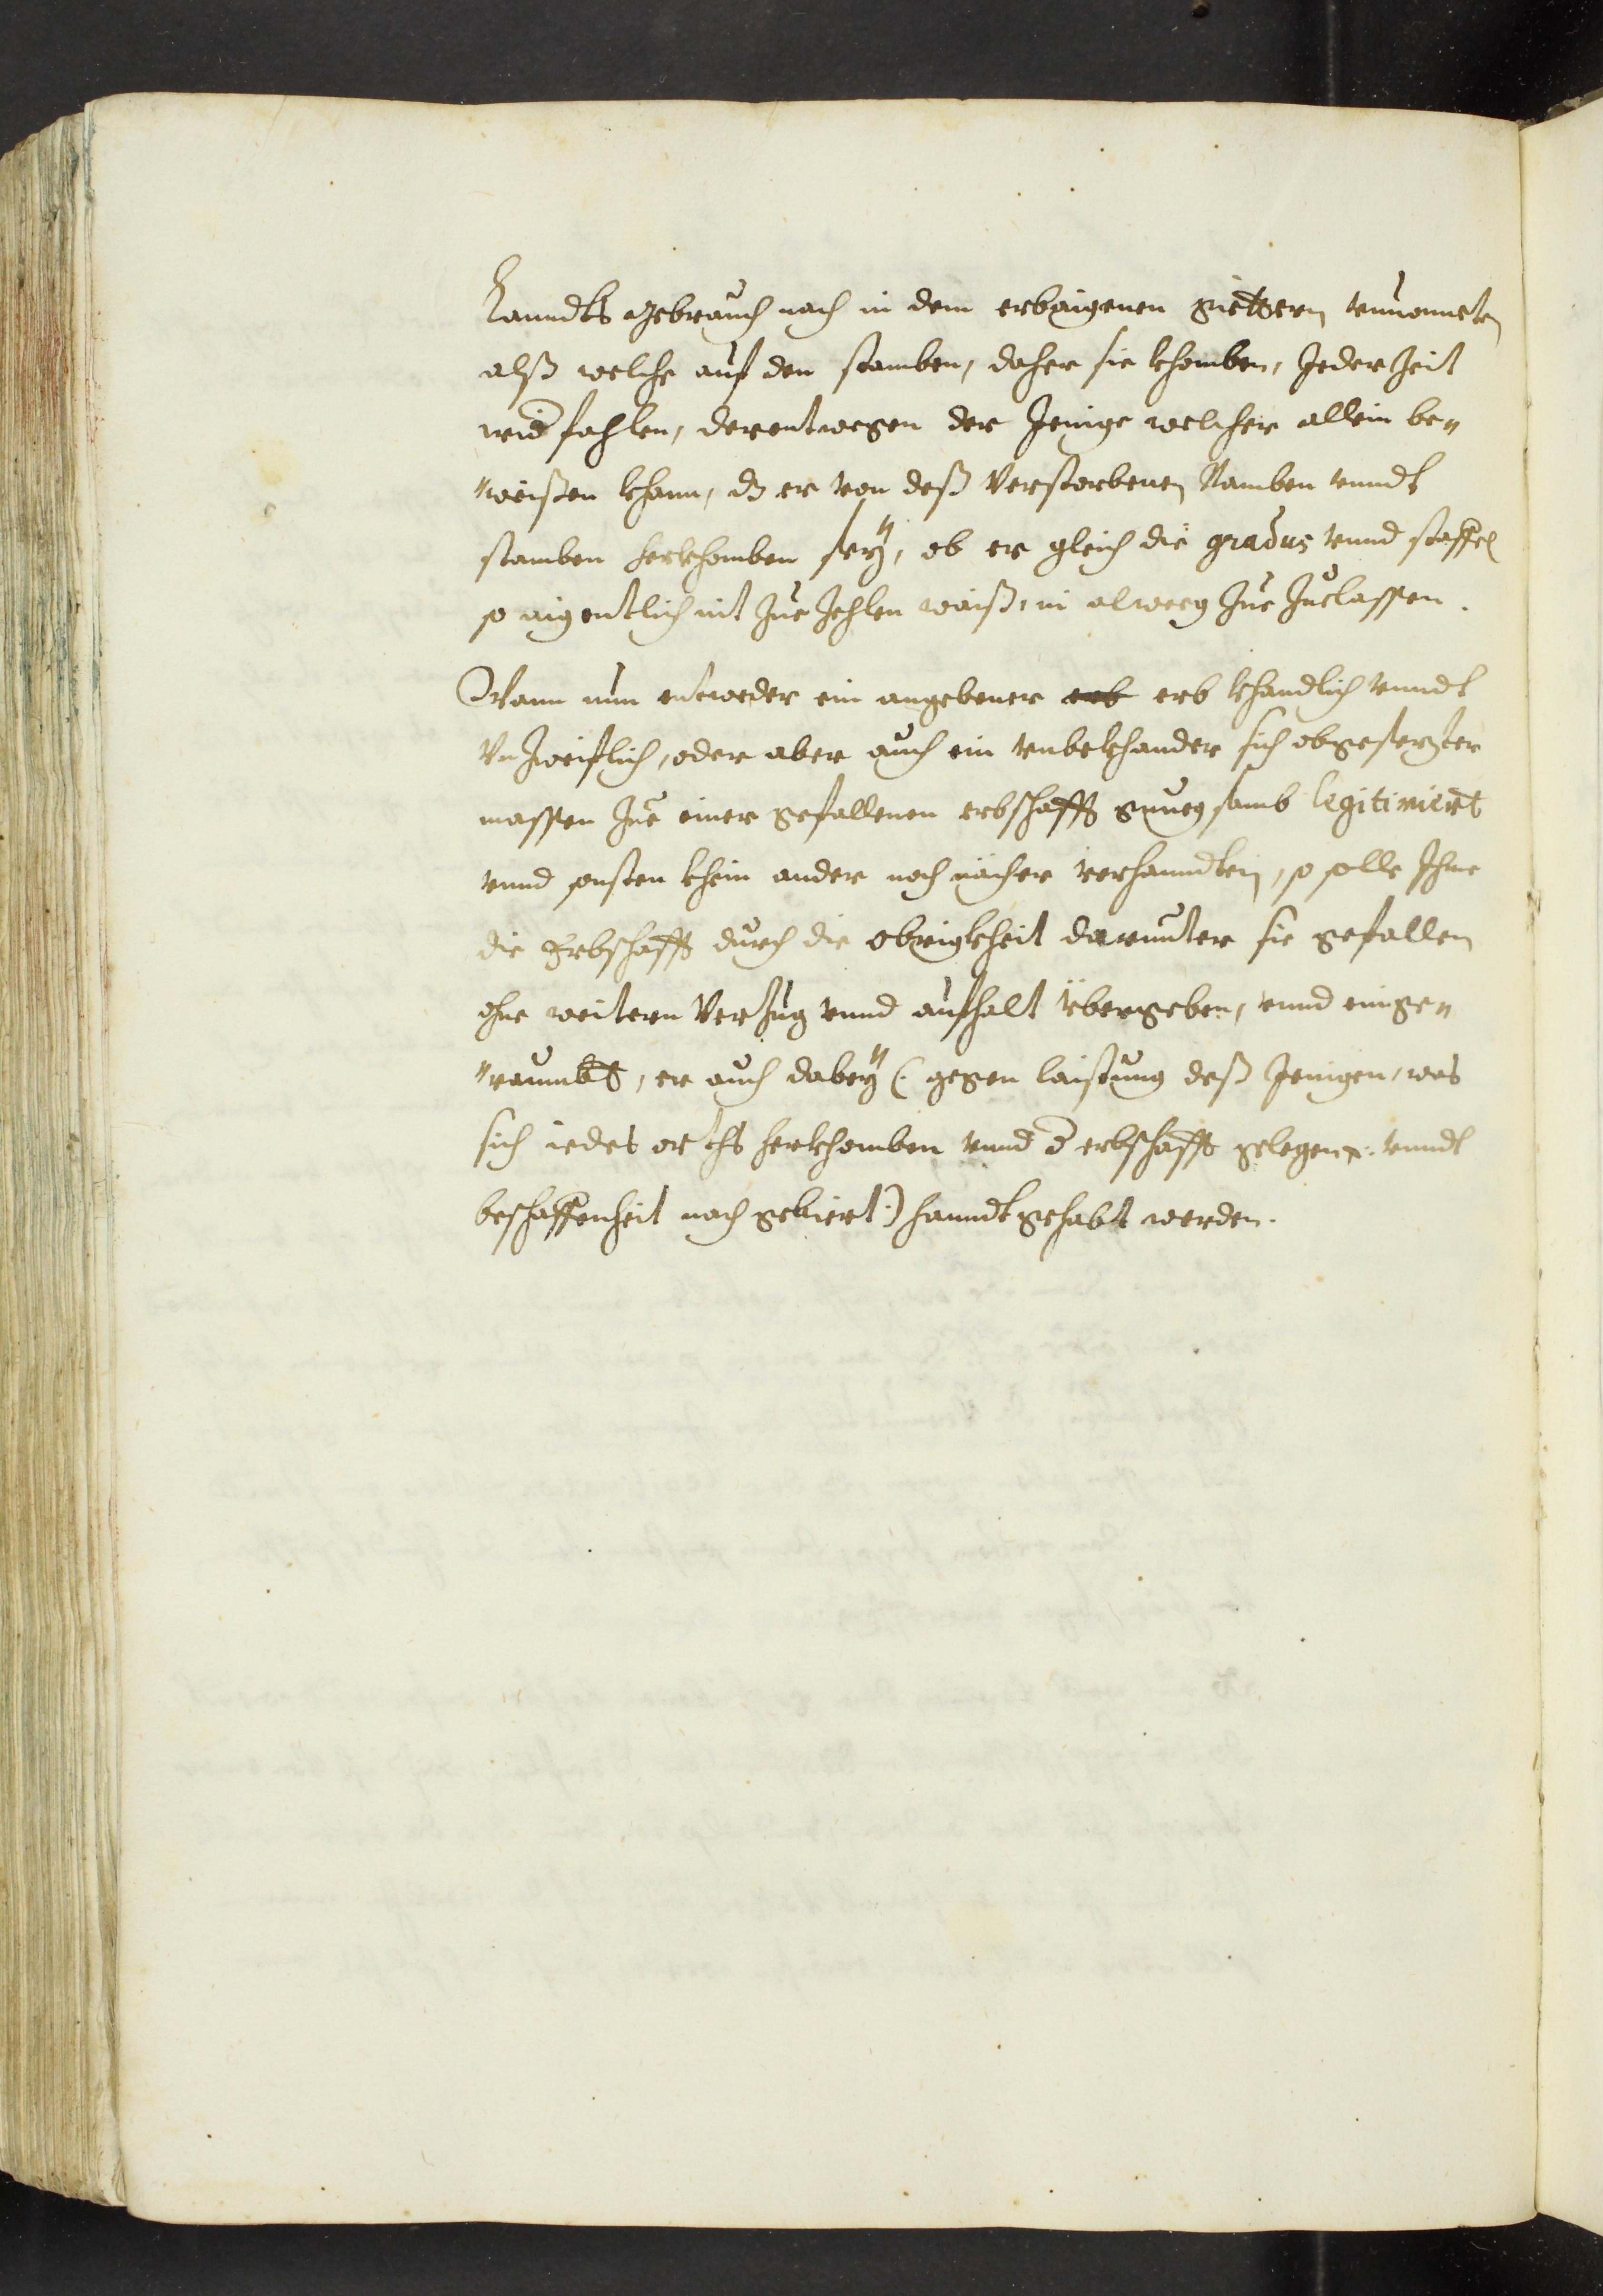 Lanndts gebrauch nach in dem erbaigenen giettern
alß welche auf den stamben, daher sie khomben, Jeder Zeit
wid fahlen, derentwegen der Jenige welcher allein be„
„weißen khann, dz er von deß Verstorbenen Namben vnndt
stamben herkhomben seÿ, ob er gleich die gradus vnnd staffel
so aigentlich nit Zue Zehlen waiß, in alweeg Zue Zuelassen.
Wann nun entweder ein angebener erb erb khandlich vnndt
Vnzweiflich, oder aber auch ein vnbekhander sich obgesezter
massen Zue einer gefallenen erbschafft gnuegsamb legitimiert
vnnd sonsten khein ander noch nächer verhanndten, so solle Ihme
die Erbschafft durch die obrigkheit darunter sie gefallen
ohne weitern Verzug vnnd aufhalt übergeben, vnnd einge„
„raumbt, er auch dabeÿ (: gegen laistung deß Jenigen, was
sich iedes orths herkhomben vnnd d erbschafft gelegen: vnndt
beschaffenheit nach gebiert:) handtgehabt werden.